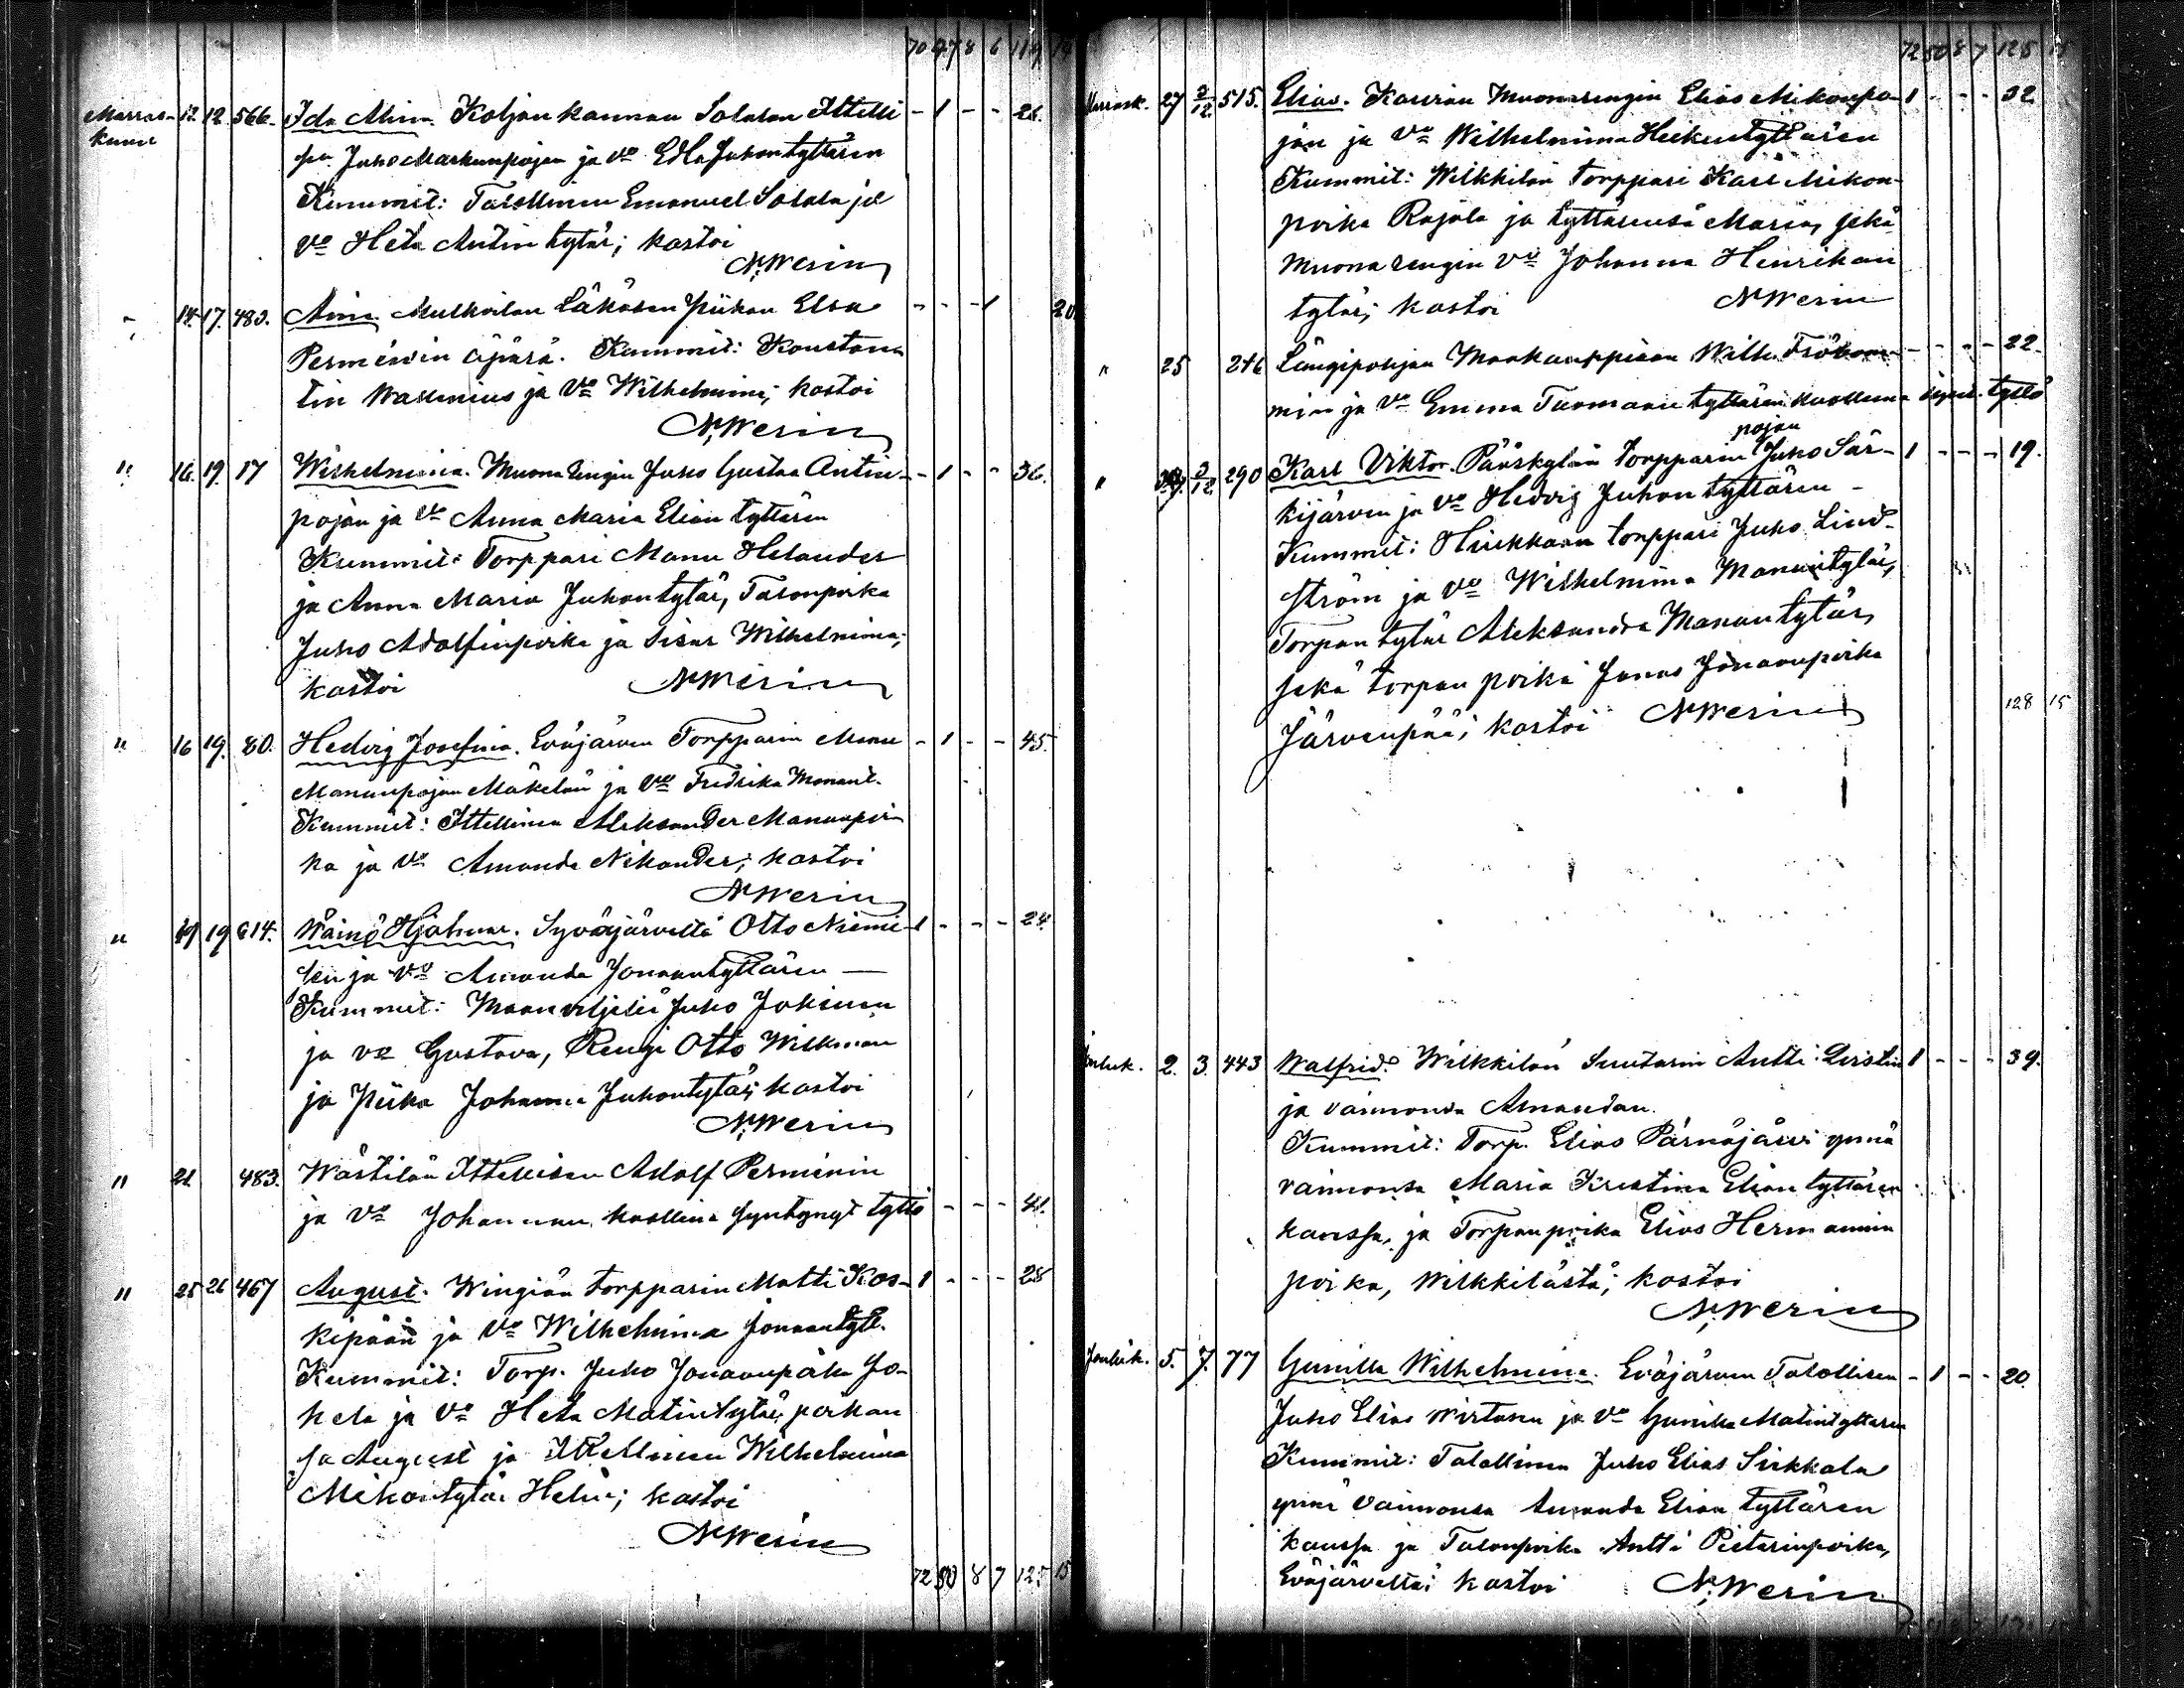 70 47 8 6 119 14
Marras- 12. 12. 566. Ida Alina. Koljonkannan Salalan Ittelli - 1 - - 26.
kuun
sen Juho Markunpojan ja vo Edla Juhontyttären
Kummit: Talollinen Emanuel Salala ja
vo Heta Antintytär; kastoi
N. Werin
" 14. 17. 483. Aina. Mulkoilan Läkäsen Piikan Elsa - - - 1 20
Perménin äpärä. Kummit: Konstan
tin Wallenius ja vo Wilhelmina; kastoi
N. Werin
" 16. 19. 17 Wilhelmina. Muonarengin Juho Gustaa Antin- - 1 - - 36.
pojan ja vo Anna Maria Elian tyttären
Kummit: Torppari Manu Helander
ja Anna Maria Juhontytär, Talonpoika
Juho Adolfinpoika ja Sisar Wilhelmina;
kastoi N. Werin
" 16 19. 80. Hedvig Josefina. Eväjärven Torpparin Manu - 1 - - 45.
Manunpojan Mäkelän ja vo Fredrika Manunt.
Kummit: Ittellinen Aleksander Manunpoi-
ka ja vo Amanda Nikander; kastoi
N. Werin
" 19 19 614. Wäinö Hjalmar. Syväjärveltä Otto Niemi- 1 - - - 24.
sen ja vo Amanda Jonaantyttären —
Kummit: Maanviljeliä Juho Jokinen
ja vo Gustava, Rengi Otto Willman
ja Piika Johanna Juhontytär; kastoi
N. Werin
" 21. 483. Wästilän Ittellisen Adolf Perménin
ja vo Johannan, kuolleena syntynyt tyttö - - - 41.
" 25 26 467 August. Wingiän torpparin Matti Kos- 1 - - - 28
kipään ja vo Wilhelmina Jonaantytt.
Kummit: Torp. Juho Jonaanpoika Jo-
kela ja vo Heta Matintytär, poikan
sa August ja Ittellinen Wilhelmina
Mikontytär Helin; kastoi
N. Werin
72 50 8 7 125 15
72 50 8 7 125 15
Marrask. 27 2/12. 515. Elias. Kauvan Muonarengin Elias Mikonpo- 1 - - - 32
jan ja vo Wilhelmina Heikintyttären
Kummit: Wilkkilän torppari Karl Mikon-
poika Rajala ja tyttärensä Maria, sekä
Muonarengin vo Johanna Henrikan
tytär; kastoi N. Werin
" 25 246 Längipohjan Maakauppiaan Wilh. - - - - 22.
min ja vo Emma Tuomaantyttären kuolleena synt. tyttö
pojan
" 2/12. 290 Karl Viktor. Pääskylän torpparin Juho Sär- 1 - - - 19.
kijärven ja vo Hedvig Juhontyttären -
Kummit: Hirkkään torppari Juho Lind-
ström ja vo Wilhelmina Manuntytär,
Torpantytär Aleksandra Manuntytär,
sekä torpan poika Jonas Jonaanpoika
128 15
Järvenpää; kastoi N. Werin
Jouluk. 2. 3. 443 Walfrid. Wilkkilän Suutarin Antti 1 - - - 39.
ja vaimonsa Amandan.
Kummit: Torp. Elias Pärnäjärvi ynnä
vaimonsa Maria Kristina Eliantyttären
kanssa, ja Torpanpoika Elias Hermannin
poika, Wilkkilästä; kastoi
N. Werin
Jouluk. 5. 7. 77 Gunilla Wilhelmina. Eväjärven Talollisen - 1 - - 20.
Juho Elias Wirtasen ja vo Gunilla Matintyttären
Kummit: Talollinen Juho Elias Sirkkala
ynnä vaimonsa Amanda Eliantyttären
kanssa ja Talonpoika Antti Pietarinpoika,
Eväjärveltä; kastoi N. Werin